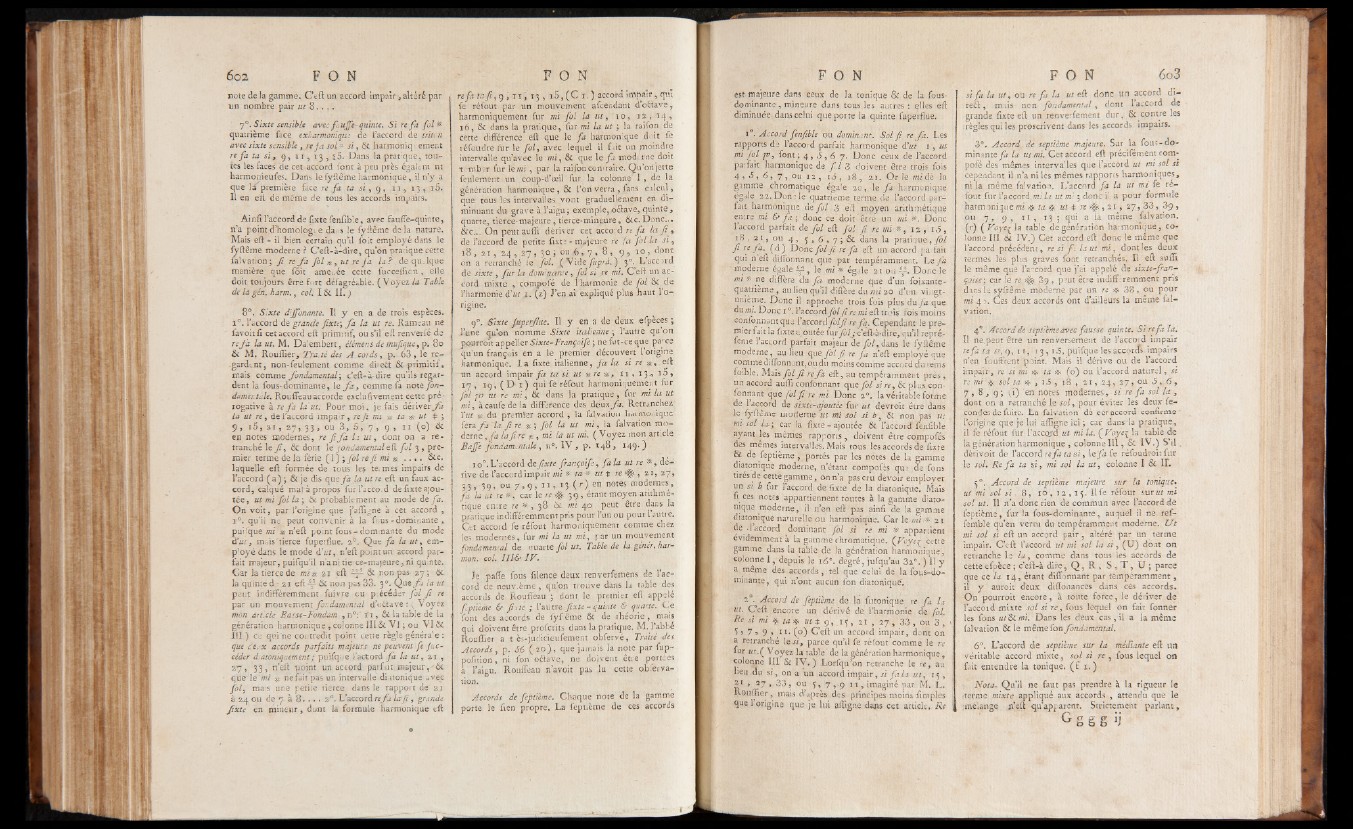 602 F O N
note de la gamme. C'est un accord impair, altéré par
un nombre pair ut 8....
7°. Sixte sensible avec fausse-quinte. Si re fa sol
quatrième face exharmonique de l'accord de
avec sixte sensible, re fa sol si, & harmoniquement
re fa ta si, 9, 11, 13, 15. Dans la pratique, tou-
tes les faces de cet accord sont à peu près également
harmonieuses. Dans le systême harmonique, il n'y a
que la première face re fa ta si, 9, 11, 13, 15.
Il en est de même de tous les accords impairs.
Ainsi l'accord de sixte sensible, avec fausse-quinte,
n'a point d'homologue dans le systême de la nature.
Mais est-il bien certain qu'il soit employé dans le
systême moderne ? C'est-à-dire, qu'on pratique cette
salvation ; si re fa sol, ut re fa la ? de quelque
manière que soit amenée cette succession, elle
doit toujours être fort désagréable. (Voyez la Table
de la gén. harm., col. I & II.)
8°. Sixte dissonante. Il y en a de trois espèces.
1°. l'accord de grande sixte ; fa la ut re. Rameau ne
savoit si cet accord est primitif, ou s'il est renversé de
re fa la ut. M. Dalembert, élémens de musique, p. 80
& M. Roussier, Traité des Accords, p. 63, le re-
gardent, non-seulement comme direct & primitif,
mais comme fondamental ; c'est-à-dire qu'ils regar-
dent la sous-dominante, le fa, comme sa note fon-
damentale. Rousseau accorde exclusivement cette pré-
rogative à re fa la ut. Pour moi, je fais dériver fa
la ut re, de l'accord impair,
9, 15, 21, 27, 33, ou 3, 5, 7, 9, 11 (o) &
en notes modernes, re si fa la ut, dont on a re-
tranché le si, & dont le fondamental est sol 3, pre-
mier terme de la série (1) ; sol re si mi .... &c.
laquelle est formée de tous les termes impairs de
l'accord (a) ; & je dis que fa la ut re est un faux ac-
cord, calqué mal à propos sur l'accord de sixte ajou-
tée, ut mi sol la ; & probablement au mode de fa.
On voit, par l'origine que j'assigne à cet accord,
1°. qu'il ne peut convenir à la sous-dominante,
puisque mi n'est point sous-dominante du mode
d'ut, mais tierce superflue. 2°. Que fa la ut, em-
ployé dans le mode d'ut, n'est point un accord par-
fait majeur, puisqu'il n'a ni tierce-majeure, ni quinte.
Car la tierce de mi 21 est & non pas 27 ; &
la quinte de 21 est & non pas 33. 3°. Que fa la ut
peut indifféremment suivre ou précéder sol si re
par un mouvement fondamental d'octave : (Voyez
mon article Basse-Fondam., n°. 11, & la table de la
génération harmonique, colonne III & VI ; ou VI &
III) ce qui ne contredit point cette règle générale :
que deux accords parfaits majeurs ne peuvent se suc-
céder diatoniquement ; puisque l'accord fa la ut, 21,
27, 33, n'est point un accord parfait majeur, &
que le mi ne fait pas un intervalle diatonique avec
sol, mais une petite tierce dans le rapport de 21
à 24 ou de 7 à 8.... 2°. L'accord re fa la si, grande
sixte en mineur, dont la formule harmonique est
F O N
re fa ta si, 9, 11, 13, 15, (C 1) accord impair, qui
se résout par un mouvement ascendant d'octave,
harmoniquement sur mi sol la ut, 10, 12, 14,
16, & dans la pratique, sur mi la ut ; la raison de
cette différence est que le fa harmonique doit se
résoudre sur le sol, avec lequel il fait un moindre
intervalle qu'avec le mi, & que le fa moderne doit
tomber sur le mi, par la raison contraire. Qu'on jette
seulement un coup-d'œil sur la colonne I, de la
génération harmonique, & l'on verra, sans calcul,
que tous les intervalles vont graduellement en di-
minuant du grave à l'aigu ; exemple, octave, quinte,
quarte, tierce-majeure, tierce-mineure, &c. Donc...
&c... On peut aussi dériver cet accord re fa la si,
de l'accord de petite sixte-majeure re fa sol la si,
18, 21, 24, 27, 30 ; ou 6, 7, 8, 9, 10, dont
on a retranché le sol. (Vide suprà.) 3°. L'accord
de sixte, sur la dominante, sol si re mi. C'est un ac-
cord mixte, composé de l'harmonie de sol & de
l'harmonie d'ut 1. (z) J'en ai expliqué plus haut l'o-
rigine.
9°. Sixte superflue. Il y en a de deux espèces ;
l'une qu'on nomme Sixte italienne ; l'autre qu'on
pourroit appeller Sixte-Françoise ; ne fut-ce que parce
qu'un français en a le premier découvert l'origine
harmonique. La sixte italienne, fa la si re, est
un accord impair fa ta si ut re, 11, 13, 15,
17, 19, (D 1) qui se résout harmoniquement sur
sol ut re mi, & dans la pratique, sur mi la ut
mi, à cause de la différence des deux fa. Retranchez
l'ut du premier accord, la salvation harmonique
sera fa la si re ; sol la ut mi, la salvation mo-
derne, fa la si re, mi la ut mi. (Voyez mon article
Basse fondamentale, n°. IV, p. 148, 149.)
10°. L'accord de sixte françoise, fa la ut re, dé-
rive de l'accord impair mi ta ut re, 21, 27,
33, 39, ou 7, 9, 11, 13 (r) en notes modernes,
fa la ut re, car le re 39, étant moyen arithmé-
tique entre re, 38 & mi 40 peut être dans la
pratique indifféremment pris pour l'un ou pour l'autre.
Cet accord se résout harmoniquement comme chez
les modernes, sur mi la ut mi, par un mouvement
fondamental de quarte sol ut. Table de la génér. har-
mon. col. III & IV.
Je passe sous silence deux renversemens de l'ac-
cord de neuvième, qu'on trouve dans la table des
accords de Rousseau ; dont le premier est appelé
septième & sixte ; l'autre sixte-quinte & quarte. Ce
sont des accords de systême & de théorie, mais
qui doivent être proscrits dans la pratique. M. l'abbé
Roussier a très-judicieusement observé, Traité des
Accords, p. 56 (20), que jamais la note par sup-
position, ni son octave, ne doivent être portées
à l'aigu. Rousseau n'avoit pas lu cette observa-
tion.
Accords de septième. Chaque note de la gamme
porte le sien propre. La septième de ces accords
F O N
est majeure dans ceux de la tonique & de la sous-
dominante, mineure dans tous les autres : elles est
diminuée dans celui que porte la quinte superflue.
1°. Accord sensible ou dominant. Sol si re fa. Les
rapports de l'accord parfait harmonique d'ut 1, ut
mi sol, sont : 4, 5, 6, 7. Donc ceux de l'accord
parfait harmonique de sol 3 doivent être trois fois
4, 5, 6, 7, ou 12, 15, 18, 21. Or le mi de la
gamme chromatique égale 20, le fa harmonique
égale 22. Donc le quatrieme terme de l'accord par-
fait harmonique de sol 3 est moyen arithmétique
entre mi & fa ; donc ce doit être un mi. Donc
l'accord parfait de sol est sol si re mi, 12, 15,
18, 21, ou 4, 5, 6, 7 ; & dans la pratique, sol
si re fa. (d) Donc sol si re fa est un accord parfait
qui n'est dissonant que par tempérament. Le fa
moderne égale, le mi égale 21 ou. Donc le
mi ne diffère du fa moderne que d'un soixante-
quatrième, au lieu qu'il diffère du mi 20 d'un vingt-
unième. Donc il approche trois fois plus du fa que
du mi. Donc 1°. l'accord sol si re mi est trois fois moins
consonnant que l'accord sol si re fa. Cependant le pre-
mier fait la sixte ajoutée sur sol, c'est-à-dire, qu'il repré-
sente l'accord parfait majeur de sol, dans le systême
moderne, au lieu que sol si re fa n'est employé que
comme dissonnant, ou du moins comme accord du repos
foible. Mais sol si re fa est, au tempérament près,
un accord aussi consonnant que sol si re, & plus con-
sonnant que sol si re mi. Donc 2°. la véritable forme
de l'accord de sixte-ajoutée sur ut devroit être dans
le systême moderne ut mi sol si b, & non pas ut
mi sol la ; car la sixte-ajoutée & l'accord sensible
ayant les mêmes rapports, doivent être composés
des mêmes intervalles. Mais tous les accords de sixte
& de septième, portés par les notes de la gamme
diatonique moderne, n'étant composés que de sons
tirés de cette gamme, on n'a pas cru devoir employer
un si b sur l'accord de sixte de la diatonique. Mais
si ces notes appartiennent toutes à la gamme diato-
nique moderne, il n'en est pas ainsi de la gamme
diatonique naturelle ou harmonique. Car le mi 21
de l'accord dominant sol si re mi appartient
évidemment à la gamme chromatique. (Voyez cette
gamme dans la table de la génération harmonique,
colonne I, depuis le 16e. dégré, jusqu'au 32e.) Il y
a même des accords, tel que celui de la sous-do-
minante, qui n'ont aucun son diatonique.
2°. Accord de septième de la sutonique re fa la
ut. C'est encore un dérivé de l'harmonie de sol.
Re si mi ta ut, 9, 15, 21, 27, 33, ou 3,
5, 7, 9, 11. (o) C'est un accord impair, dont on
a retranché le si, parce qu'il se résout comme le re
sur ut. (Voyez la table de la génération harmonique,
colonne III & IV.) Lorsqu'on retranche le re, au
lieu du si, on a un accord impair, si fa la ut, 15,
21, 27, 33, ou 5, 7, 9 11, imaginé par M. L.
Roussier, mais d'après des principes moins simples
que l'origine que je lui assigne dans cet article. Re
F O N 603
si fa la ut, ou re fa la ut est donc un accord di-
rect, mais non fondamental, dont l'accord de
grande sixte est un renversement dur, & contre les
règles qui les proscrivent dans les accords impairs.
3°. Accord de septième majeure. Sur la sous-do-
minante fa la ut mi. Cet accord est précisément com-
posé des mêmes intervalles que l'accord ut mi sol si
cependant il n'a ni les mêmes rapports harmoniques,
ni la même salvation. L'accord fa la ut mi se ré-
sout sur l'accord mi la ut mi ; donc il a pour formule
harmonique mi ta ut re, 21, 27, 33, 39,
ou 7, 9, 11, 13 ; qui a la même salvation.
(r) (Voyez la table de génération harmonique, co-
lonne III & IV.) Cet accord est donc le même que
l'accord précédent, re si fa la ut mi, dont les deux
termes les plus graves sont retranchés. Il est aussi
le même que l'accord que j'ai appelé de sixte-fran-
çaise ; car le re 39, peut être indifféremment pris
dans le systême moderne par un re 38, ou pour
mi 40. Ces deux accords ont d'ailleurs la même sal-
vation.
4°. Accord de septième avec fausse quinte. Si re fa la.
Il ne peut être un renversement de l'accord impair
re fa ta si, 9, 11, 13, 15, puisque les accords impairs
n'en souffrent point. Mais il dérive ou de l'accord
impair, re si mi ta (o) ou l'accord naturel, si
re mi sol ta, 15, 18, 21, 24, 27, ou 5, 6,
7, 8, 9 ; (i) en notes modernes, si re fa sol la,
dont on a retranché le sol, pour éviter les deux se-
condes de suite. La salvation de cet accord confirme
l'origine que je lui assigne ici ; car dans la pratique,
il se résout sur l'accord ut mi la. (Voyez la table de
la génération harmonique, colonne III, & IV.) S'il
dérivoit de l'accord re fa ta si, le fa se résoudroit sur
le sol. Re fa ta si, mi sol la ut, colonne I & II.
5°. Accord de septième majeure sur la tonique.
ut mi sol si 8, 10, 12, 15. Il se résout sur ut mi
sol ut. Il n'a donc rien de commun avec l'accord de
septième, sur la sous-dominante, auquel il ne res-
semble qu'en vertu du tempéramment moderne. Ut
mi sol si est un accord pair, altéré par un terme
impair. C'est l'accord ut mi sol la si, (U) dont on
retranche le la, comme dans tous les accords de
cette espèce ; c'est-à-dire, Q, R, S, T, U ; parce
que ce la 14, étant dissonnant par tempéramment,
il y auroit deux dissonances dans ces accords.
On pourroit encore, à toute force, le dériver de
l'accord mixte sol si re, sous lequel on fait sonner
les sons ut & mi. Dans les deux cas, il a la même
salvation & le même son fondamental.
6°. L'accord de septième sur la médiante est un
véritable accord mixte, sol si re, sous lequel on
fait entendre la tonique. (E 1.)
Nota. Qu'il ne faut pas prendre à la rigueur le
terme mixte appliqué aux accords, attendu que le
mélange n'est qu'apparent. Strictement parlant,
G g g g ij